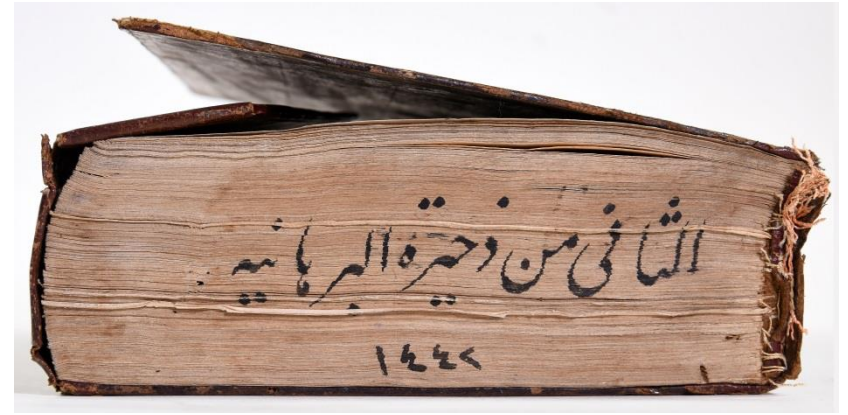 الثانى من ذخيرة البرهانيه